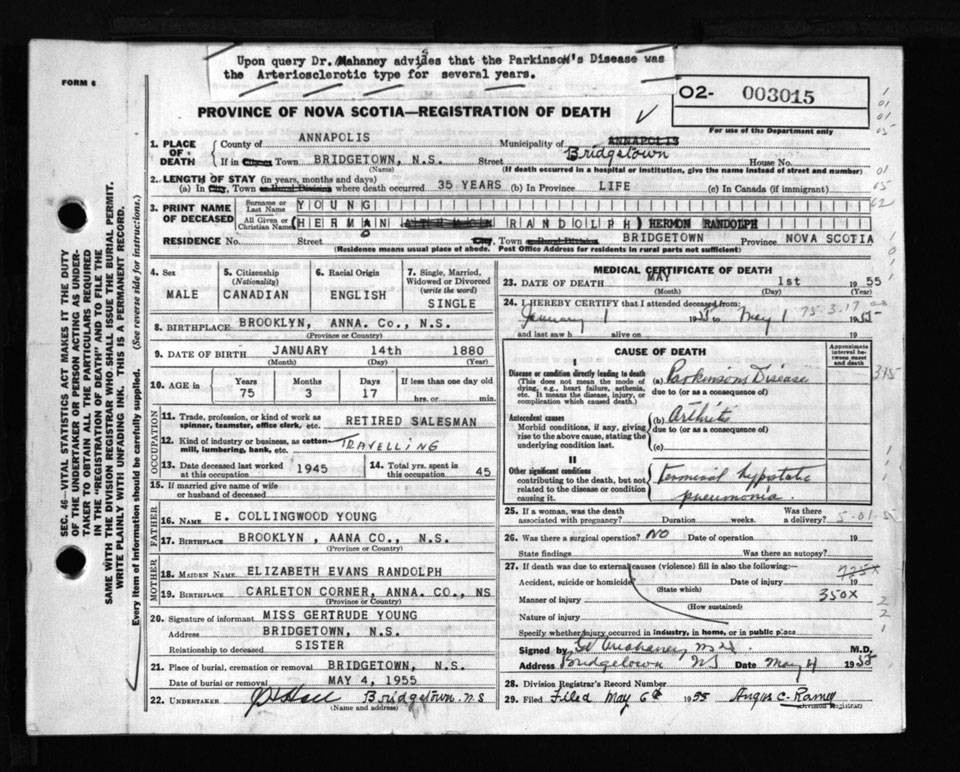 Upon query Dr. Mahaney advises that the Parkinson's Disease was
the Arteriosclerotic type for several years.
FORM 6
O2- 003015
For use of the Department only
PROVINCE OF NOVA SCOTIA—REGISTRATION OF DEATH
1. PLACE OF DEATH
County of ANNAPOLIS Municipality of ANNAPOLIS Bridgetown
If in City or Town BRIDGETOWN, N.S. Street House No.
(Name) (If death occurred in a hospital or institution, give the name instead of street and number)
2. LENGTH OF STAY (in years, months and days)
(a) In City, Town or Rural Division where death occurred 35 YEARS (b) In Province LIFE (c) In Canada (if immigrant)
3. PRINT NAME OF DECEASED
Surname or Last Name YOUNG
All Given or Christian Names (HERMAN RANDOLPH) HERMON RANDOLPH
O
RESIDENCE No. Street City, Town or Rural Division BRIDGETOWN Province NOVA SCOTIA
(Residence means usual place of abode. Post Office Address for residents in rural parts not sufficient)
4. Sex MALE
5. Citizenship (Nationality) CANADIAN
6. Racial Origin ENGLISH
7. Single, Married, Widowed or Divorced (write the word) SINGLE
8. BIRTHPLACE BROOKLYN, ANNA. Co., N.S.
(Province or Country)
9. DATE OF BIRTH JANUARY 14th 1880
(Month) (Day) (Year)
10. AGE in Years 75 Months 3 Days 17 If less than one day old hrs. or min.
OCCUPATION
11. Trade, profession or kind of work as spinner, teamster, office clerk, etc. RETIRED SALESMAN
12. Kind of industry or business, as cotton mill, lumbering, bank, etc. TRAVELLING
13. Date deceased last worked at this occupation 1945
14. Total yrs. spent in this occupation 45
15. If married give name of wife or husband of deceased
FATHER
16. NAME E. COLLINGWOOD YOUNG
17. BIRTHPLACE BROOKLYN , AANA CO., N.S.
(Province or Country)
MOTHER
18. MAIDEN NAME ELIZABETH EVANS RANDOLPH
19. BIRTHPLACE CARLETON CORNER, ANNA. CO., NS
(Province or Country)
20. Signature of informant MISS GERTRUDE YOUNG
Address BRIDGETOWN, N.S.
Relationship to deceased SISTER
21. Place of burial, cremation or removal BRIDGETOWN, N.S.
Date of burial or removal MAY 4, 1955
22. UNDERTAKER Bridgetown. N S
(Name and address)
MEDICAL CERTIFICATE OF DEATH
23. DATE OF DEATH MAY 1st 1955
(Month) (Day) (Year)
24. I HEREBY CERTIFY that I attended deceased from:
January 1 1955 to May 1 1955
75-3-17
and last saw h alive on 19
CAUSE OF DEATH
Approximate interval between onset and death
I
Disease or condition directly leading to death
(This does not mean the mode of dying, e.g., heart failure, asthenia, etc. It means the disease, injury, or complication which caused death.)
(a) Parkinson's Disease
due to (or as a consequence of)
Antecedent causes
Morbid conditions, if any, giving rise to the above cause, stating the underlying condition last.
(b) Arthritis
due to (or as a consequence of)
(c)
II
Other significant conditions
contributing to the death, but not related to the disease or condition causing it.
Terminal hypostatic
pneumonia.
25. If a woman, was the death associated with pregnancy? Duration weeks. Was there a delivery?
26. Was there a surgical operation? NO Date of operation 19
State findings Was there an autopsy?
27. If death was due to external causes (violence) fill in also the following:—
Accident, suicide or homicide Date of injury 19
(State which)
Manner of injury 350X
(How sustained)
Nature of injury
Specify whether injury occurred in industry, in home, or in public place
Signed by M.D.
Address Bridgetown NS Date May 4 1955
28. Division Registrar's Record Number
29. Filed Filed May 6th 1955 Angus C. Ramey
Division Registrar
SEC. 46—VITAL STATISTICS ACT MAKES IT THE DUTY
OF THE UNDERTAKER OR PERSON ACTING AS UNDER-
TAKER TO OBTAIN ALL THE PARTICULARS REQUIRED
IN THE "REGISTRATION OF DEATH" AND TO FILE THE
SAME WITH THE DIVISION REGISTRAR WHO SHALL ISSUE THE BURIAL PERMIT.
WRITE PLAINLY WITH UNFADING INK. THIS IS A PERMANENT RECORD.
Every item of information should be carefully supplied. (See reverse side for instructions.)